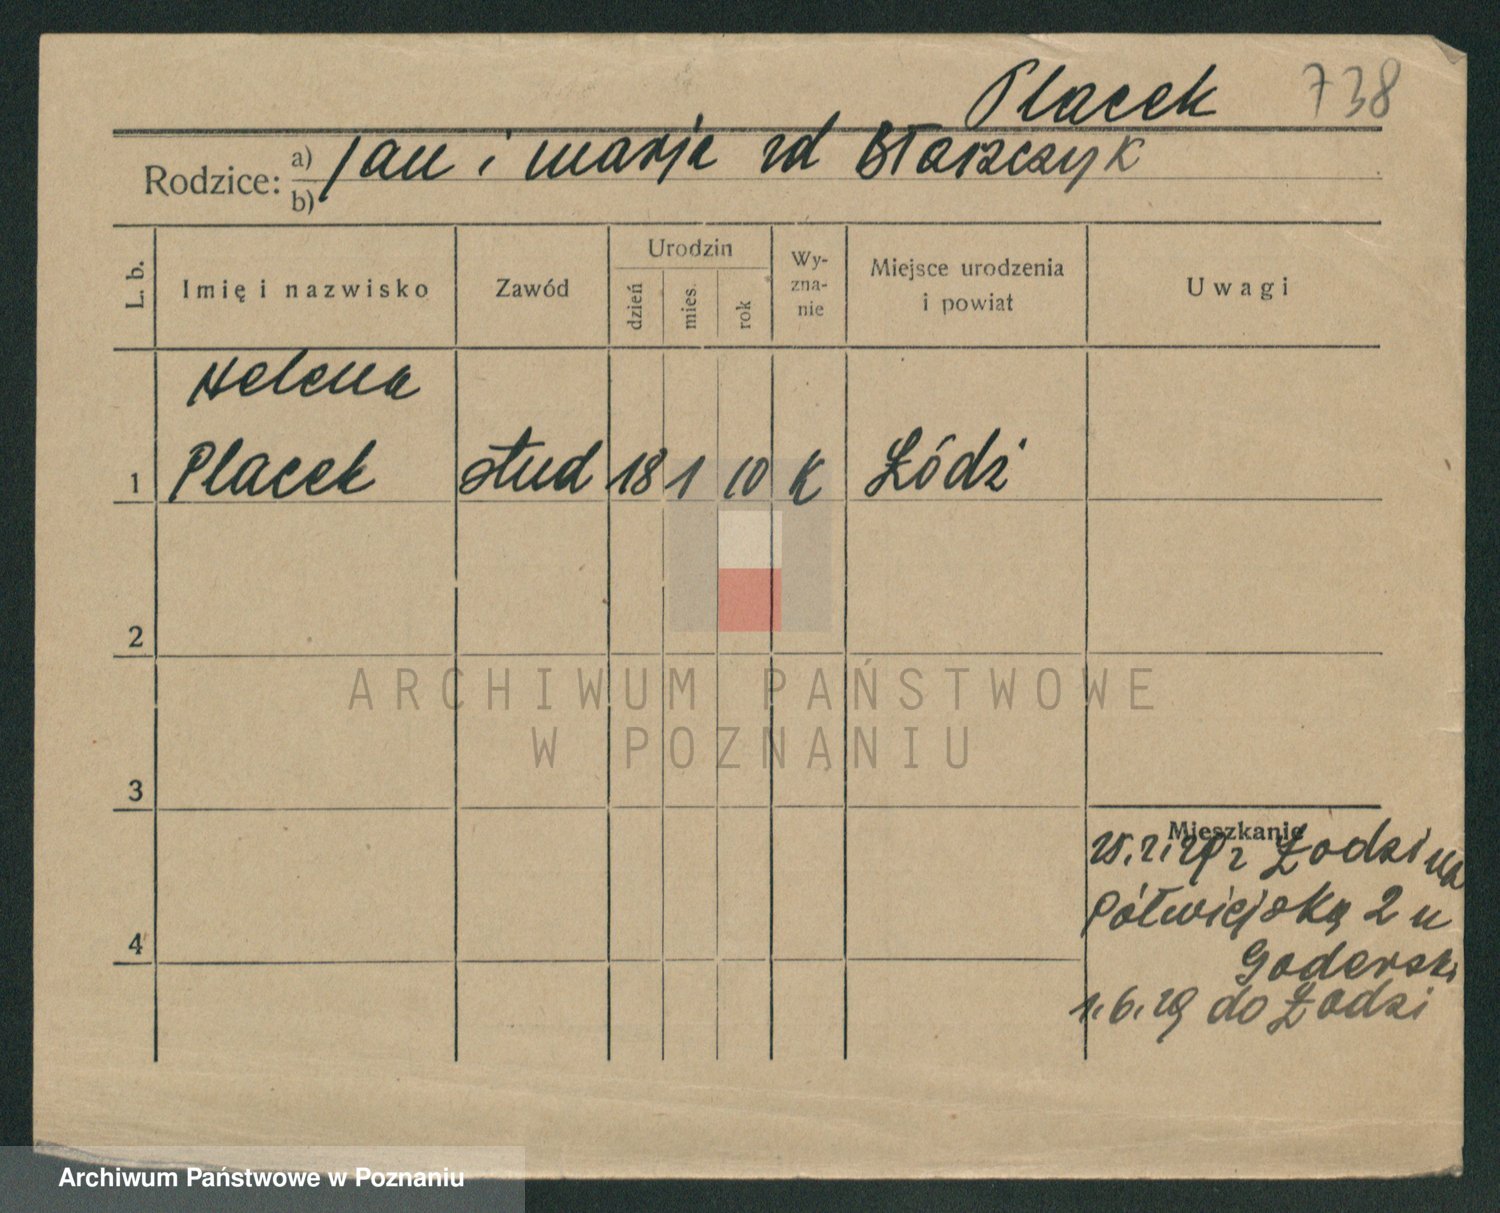 Placek 738
Rodzice: a) Jan i Marja zd Błaszczyk
b)
L. b. Imię i nazwisko Zawód Urodzin dzień mies. rok Wy-zna-nie Miejsce urodzenia i powiat Uwagi
Helena
1 Placek stud 18 1 10 K Łódź
2
ARCHIWUM PAŃSTWOWE
W POZNANIU
3
Mieszkanie
z Łodzi na
Półwiejską 2 u
Goderski
4
1.6.29 do Łodzi
Archiwum Państwowe w Poznaniu